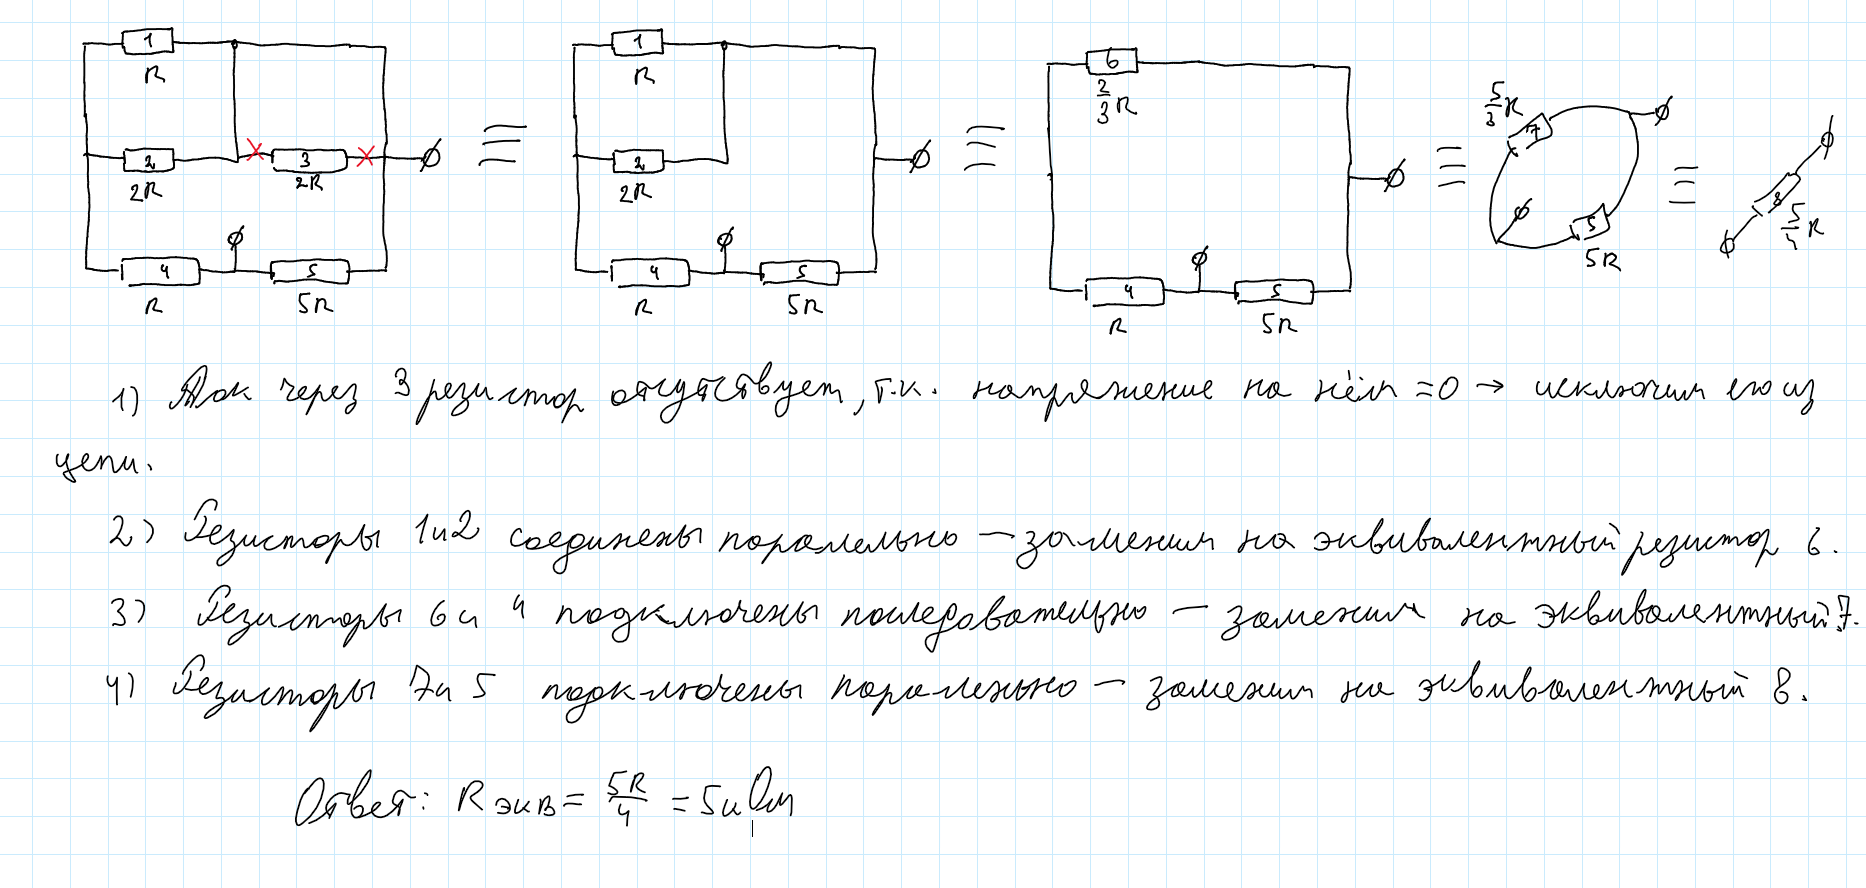 1 1 6 5/3 R 7
R R 2/3 R
2 3 2 8 5/4 R
2R 2R 2R 5 5R
4 5 4 5 4 5
R 5R R 5R R 5R
1) Ток через 3 резистор отсутствует, т.к. напряжение на нём =0 → исключим его из
цепи.
2) Резисторы 1 и 2 соединены паралельно — заменим на эквивалентный резистор 6.
3) Резисторы 6 и 4 подключены последовательно — заменим на эквивалентный 7.
4) Резисторы 7 и 5 подключены паралельно — заменим на эквивалентный 8.
Ответ: R экв = 5R/4 = 5кОм